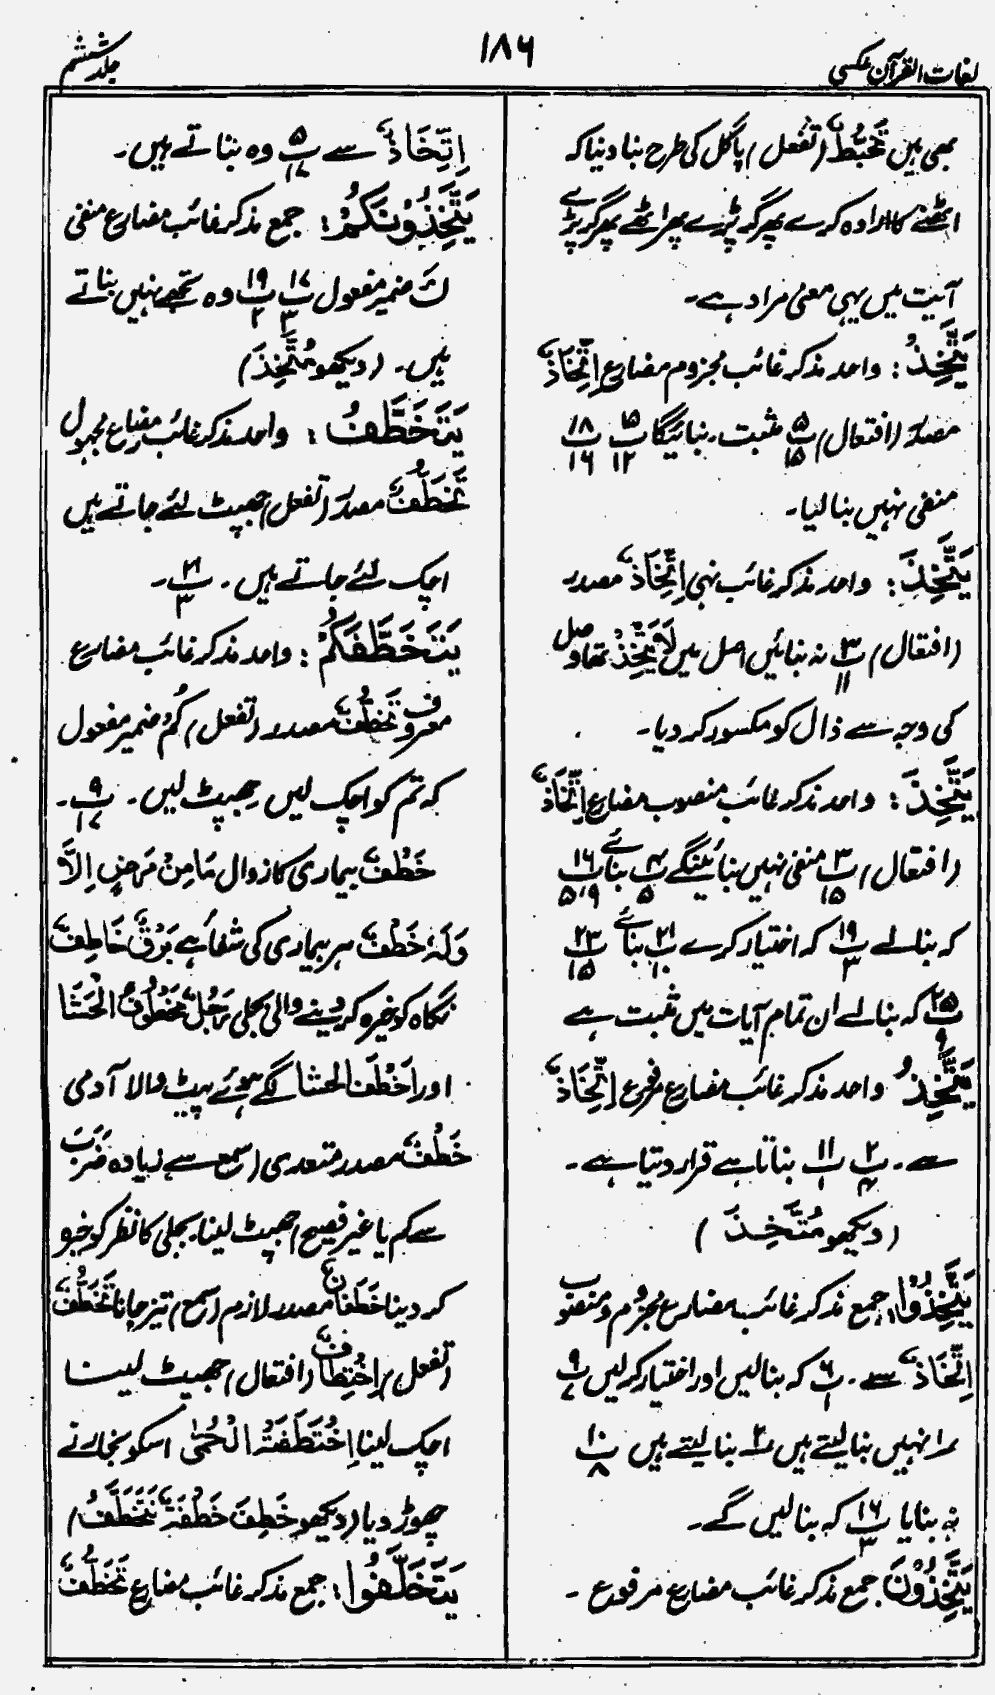 لغات القرآن عکسی
۱۸۶
جلد ششم
بھی ہیں تَخَبُّطٌ (تفعل) پاگل کی طرح بنا دینا کہ
اٹھنے کا ارادہ کرے پھر گر پڑے پھر اٹھے پھر گر پڑے
آیت میں یہی معنی مراد ہے۔
يَتَّخِذُ: واحد مذکر غائب مجزوم مضارع اِتِّخَاذٌ
مصدر (افتعال) پ ۵ ۱۵ مثبت۔ بنائیگا ۱۵ ۱۲ پ ۱۸ ۱۶
منفی نہیں بنا لیا۔
يَتَّخِذِ: واحد مذکر غائب نہی اِتِّخَاذٌ مصدر
(افتعال) پ ۳ ۱۱ نہ بنائیں اصل میں لَا يَتَّخِذْ تھا وصل
کی وجہ سے ذال کو مکسور کر دیا۔
يَتَّخِذَ: واحد مذکر غائب منصوب مضارع اِتِّخَاذٌ
(افتعال) پ ۳ ۱۵ منفی نہیں بنائینگے پ ۵ بنائے پ ۱۶ ۵،۹
کہ بنالے پ ۱۹ ۳ کہ اختیار کرے پ ۲۱ ۱۰ بنائے پ ۲۳ ۱۵
پ ۲۵ ۹ کہ بنالے ان تمام آیات میں مثبت ہے
يَتَّخِذُ واحد مذکر غائب مضارع مرفوع اِتِّخَاذٌ
سے۔ پ ۲ ۴ پ ۱۱ ۱ بناتا ہے قرار دیتا ہے۔
(دیکھو مُتَّخِذَ)
يَتَّخِذُوْا، جمع مذکر غائب مضارع مجزوم و منصوب
اِتِّخَاذٌ سے۔ پ ۶ ۱ کہ بنالیں اور اختیار کرلیں پ ۹
راہ نہیں بنا لیتے ہیں بنا لیتے ہیں پ ۱۰ ۸
نہ بنایا پ ۱۶ ۳ کہ بنا لیں گے۔
يَتَّخِذُوْنَ جمع مذکر غائب مضارع مرفوع۔
اِتِّخَاذٌ سے پ ۵ ۱۷ وہ بناتے ہیں۔
يَتَّخِذُوْنَكَ: جمع مذکر غائب مضارع منفی
كَ ضمیر مفعول پ ۱۷ ۳ پ ۱۹ ۲ وہ تجھے نہیں بناتے
ہیں۔ (دیکھو مُتَّخِذَ)
يُتَخَطَّفُ: واحد مذکر غائب مضارع مجہول
تَخَطُّفٌ مصدر (تفعل) جھپٹ لئے جاتے ہیں
اچک لئے جاتے ہیں۔ پ ۲۱ ۳۔
يَتَخَطَّفَكُمْ: واحد مذکر غائب مضارع
معروف تَخَطُّفٌ مصدر (تفعل) كُمْ ضمیر مفعول
کہ تم کو اچک لیں جھپٹ لیں۔ پ ۹ ۱۷۔
خُطْفٌ بیماری کا زوال مَا مِنْ مَرَضٍ اِلَّا
وَلَهٗ خُطْفٌ ہر بیماری کی شفا ہے بَرْقٌ خَاطِفٌ
نگاہ کو خیرہ کر دینے والی بجلی رَجُلٌ مَخْطُوْفُ الْحَشَا
اور اَخْطَفُ الحشا لگے ہوئے پیٹ والا آدمی
خَطْفٌ مصدر متعدی (سمع سے زیادہ ضَرَبَ
سے کم یا غیر فصیح) جھپٹ لینا۔ بجلی کا نظر کو خیرہ
کر دینا خَطَفَانٌ مصدر لازم (سمع) تیز جانا تَخَطُّفٌ
(تفعل) اِخْتِطَافٌ (افتعال) جھپٹ لینا
اچک لینا اِخْتَطَفَتْهُ الْحُمّٰى اسکو بخار نے
چھوڑ دیا (دیکھو خَطِفَ خَطْفَةٌ نُتَخَطَّفُ)
يَتَخَلَّفُوْا: جمع مذکر غائب مضارع